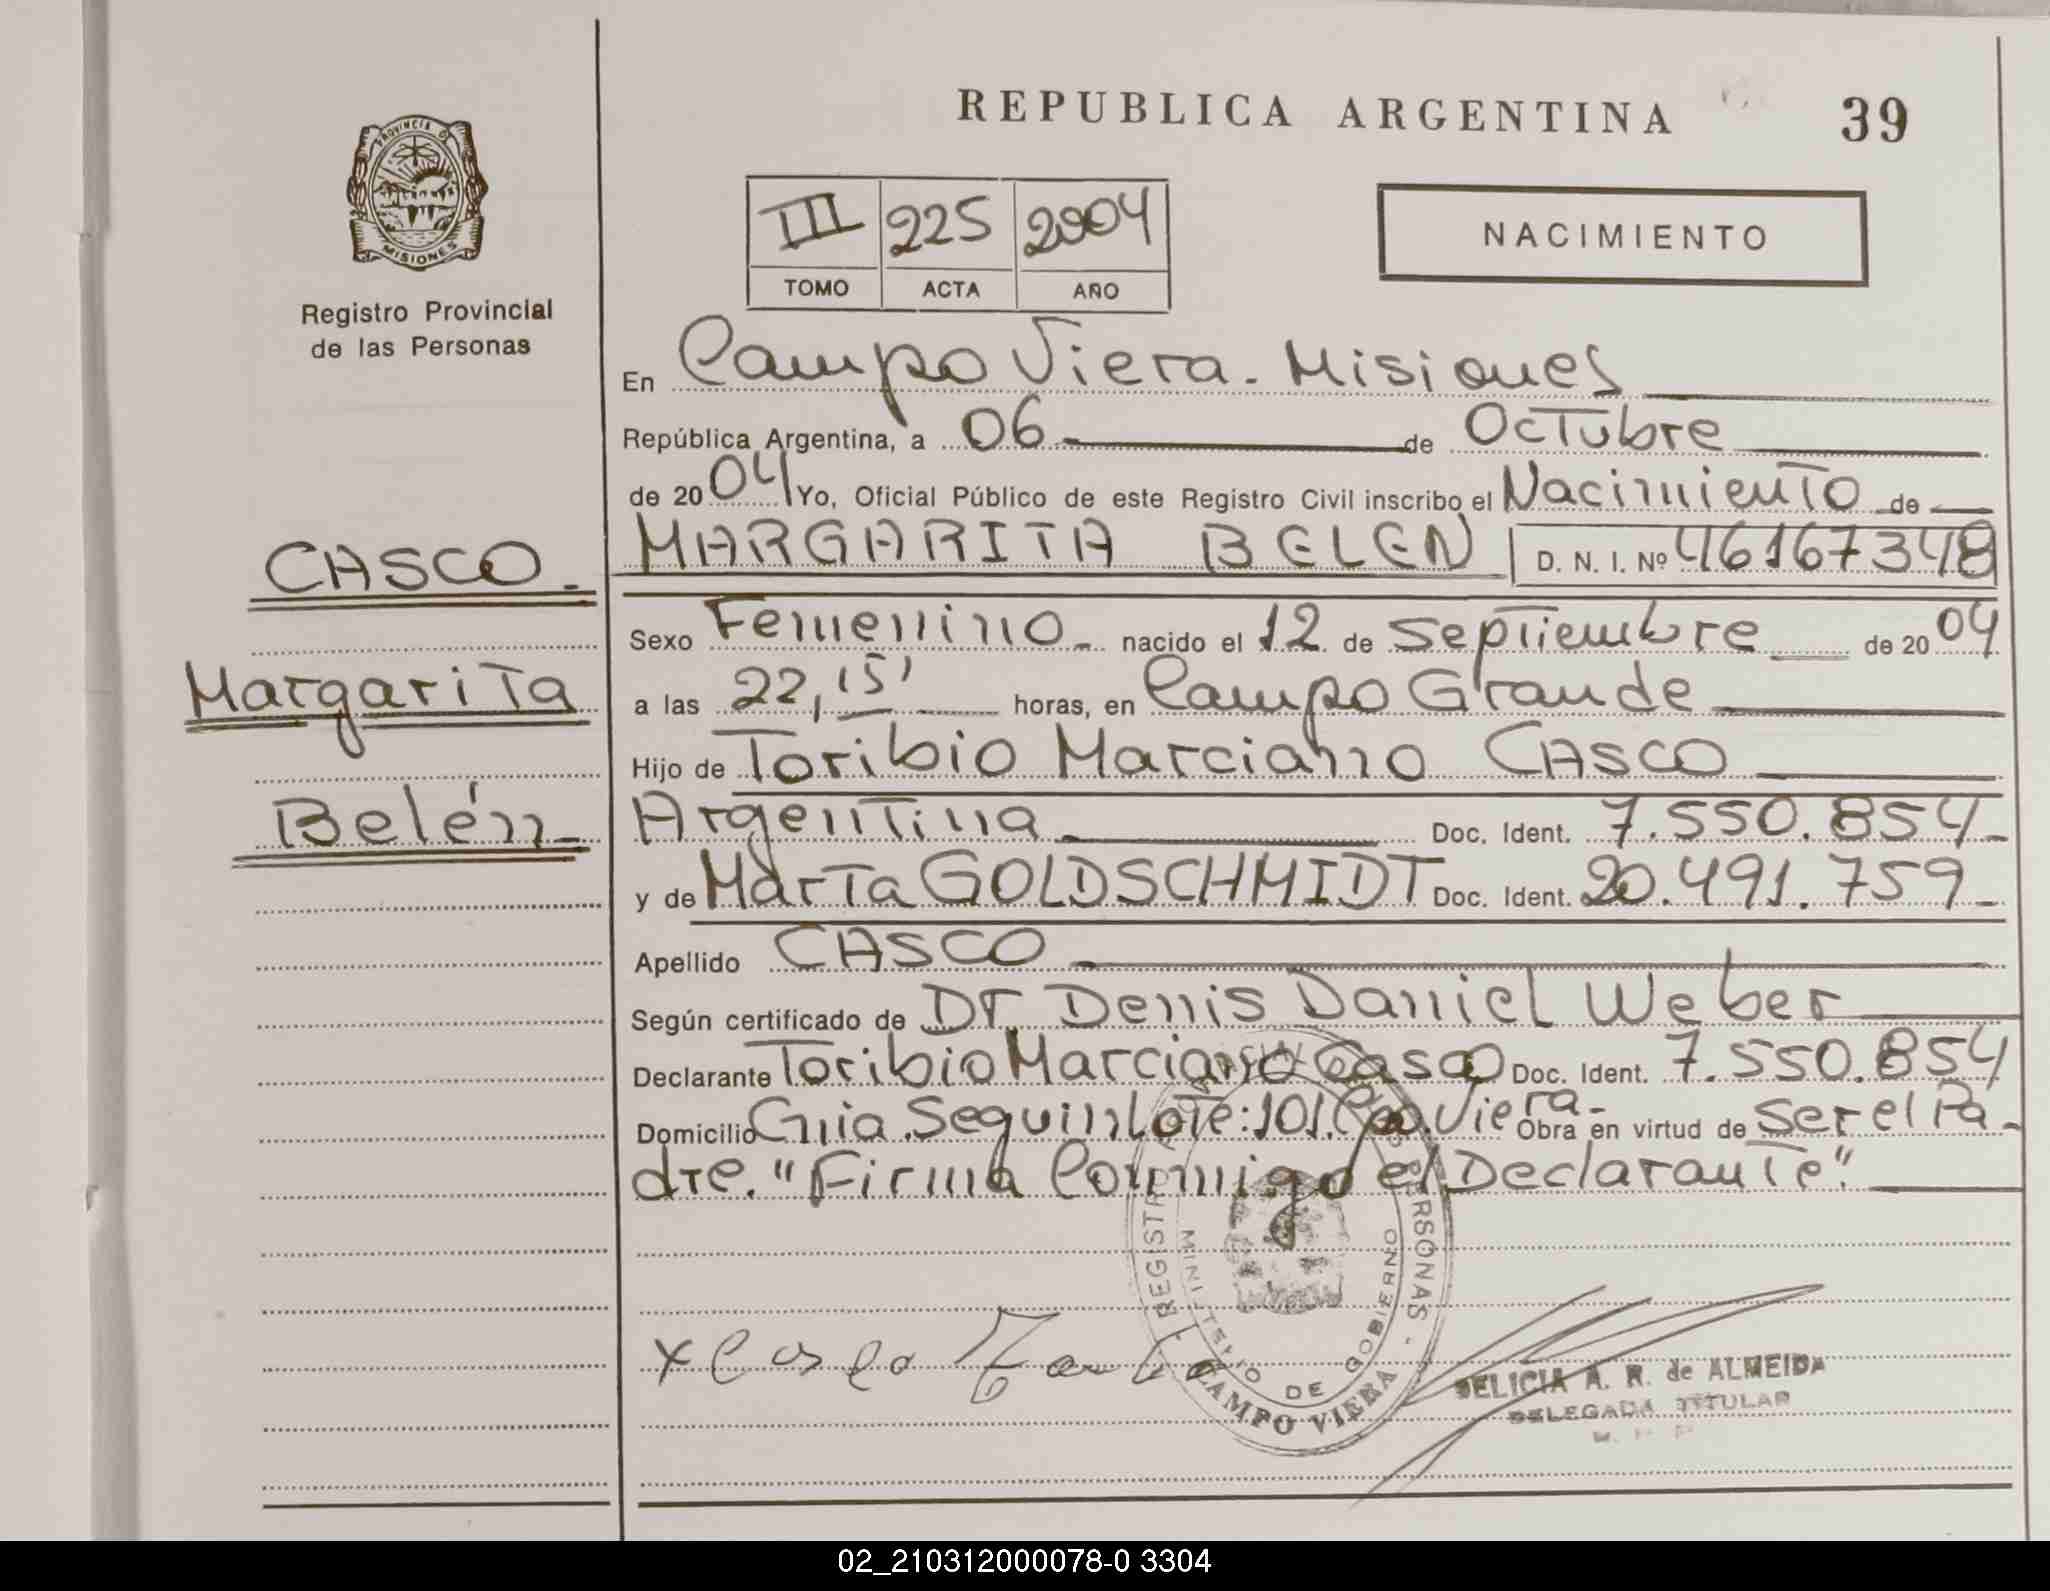 REPUBLICA ARGENTINA 39
PROVINCIA D
MISIONES
Registro Provincial
de las Personas
III 225 2004
TOMO ACTA AÑO
NACIMIENTO
En Campo Viera - Misiones
República Argentina, a 06 de Octubre
de 20 04 Yo, Oficial Público de este Registro Civil inscribo el Nacimiento de
CASCO.
MARGARITA BELEN D. N. I. Nº 46167348
Sexo Femenino nacido el 12 de Septiembre de 20 04
Margarita
a las 22,15' horas, en Campo Grande
Hijo de Toribio Marciano CASCO
Belén
Argentina Doc. Ident. 7.550.854
y de Marta GOLDSCHMIDT Doc. Ident. 20.491.759
Apellido CASCO
Según certificado de Dr. Denis Daniel Weber
Declarante Toribio Marciano Casco Doc. Ident. 7.550.854
Domicilio Guia Seguin Lote: 101. Cpo. Viera- Obra en virtud de Ser el Pa-
dre. "Firma Conmigo el Declarante".
REGISTRO PERSONAS
MINISTERIO DE GOBIERNO
CAMPO VIERA
x Casco
DELICIA A. R. de ALMEIDA
DELEGADA TITULAR
02_210312000078-0 3304